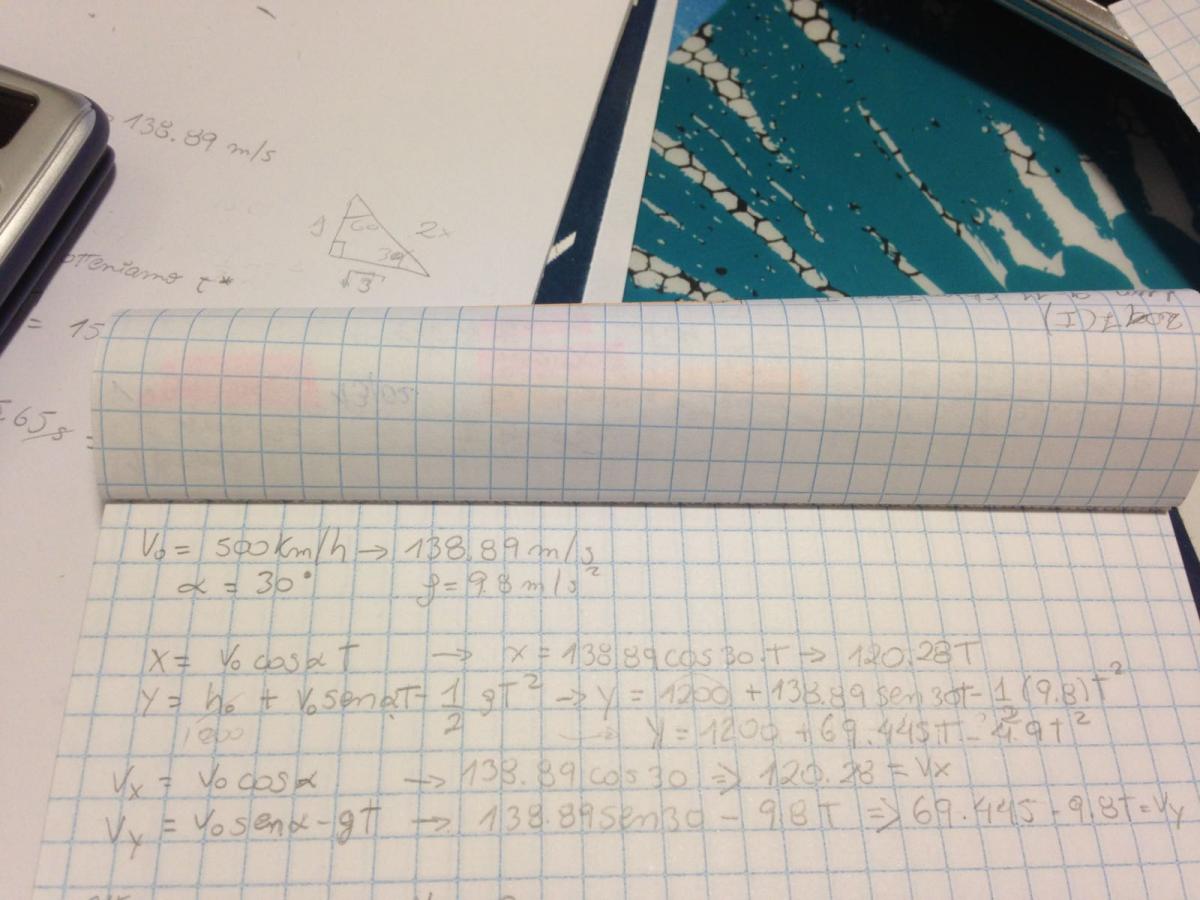 138.89 m/s
60
2x
30
√3
otteniamo t*
= 15
.65 s =
2017 (I)
V₀ = 500 Km/h → 138.89 m/s
α = 30° g = 9.8 m/s²
X = V₀ cosα T → x = 138.89 cos 30.T → 120.28T
Y = h₀ + V₀ senαT - 1/2 gT² → Y = 1200 + 138.89 sen 30T - 1/2 (9.8)T²
1200 → Y = 1200 + 69.445T - 4.9T²
Vx = V₀ cosα → 138.89 cos 30 ⇒ 120.28 = Vx
Vy = V₀ senα - gT → 138.89 sen 30 - 9.8T ⇒ 69.445 - 9.8T = Vy